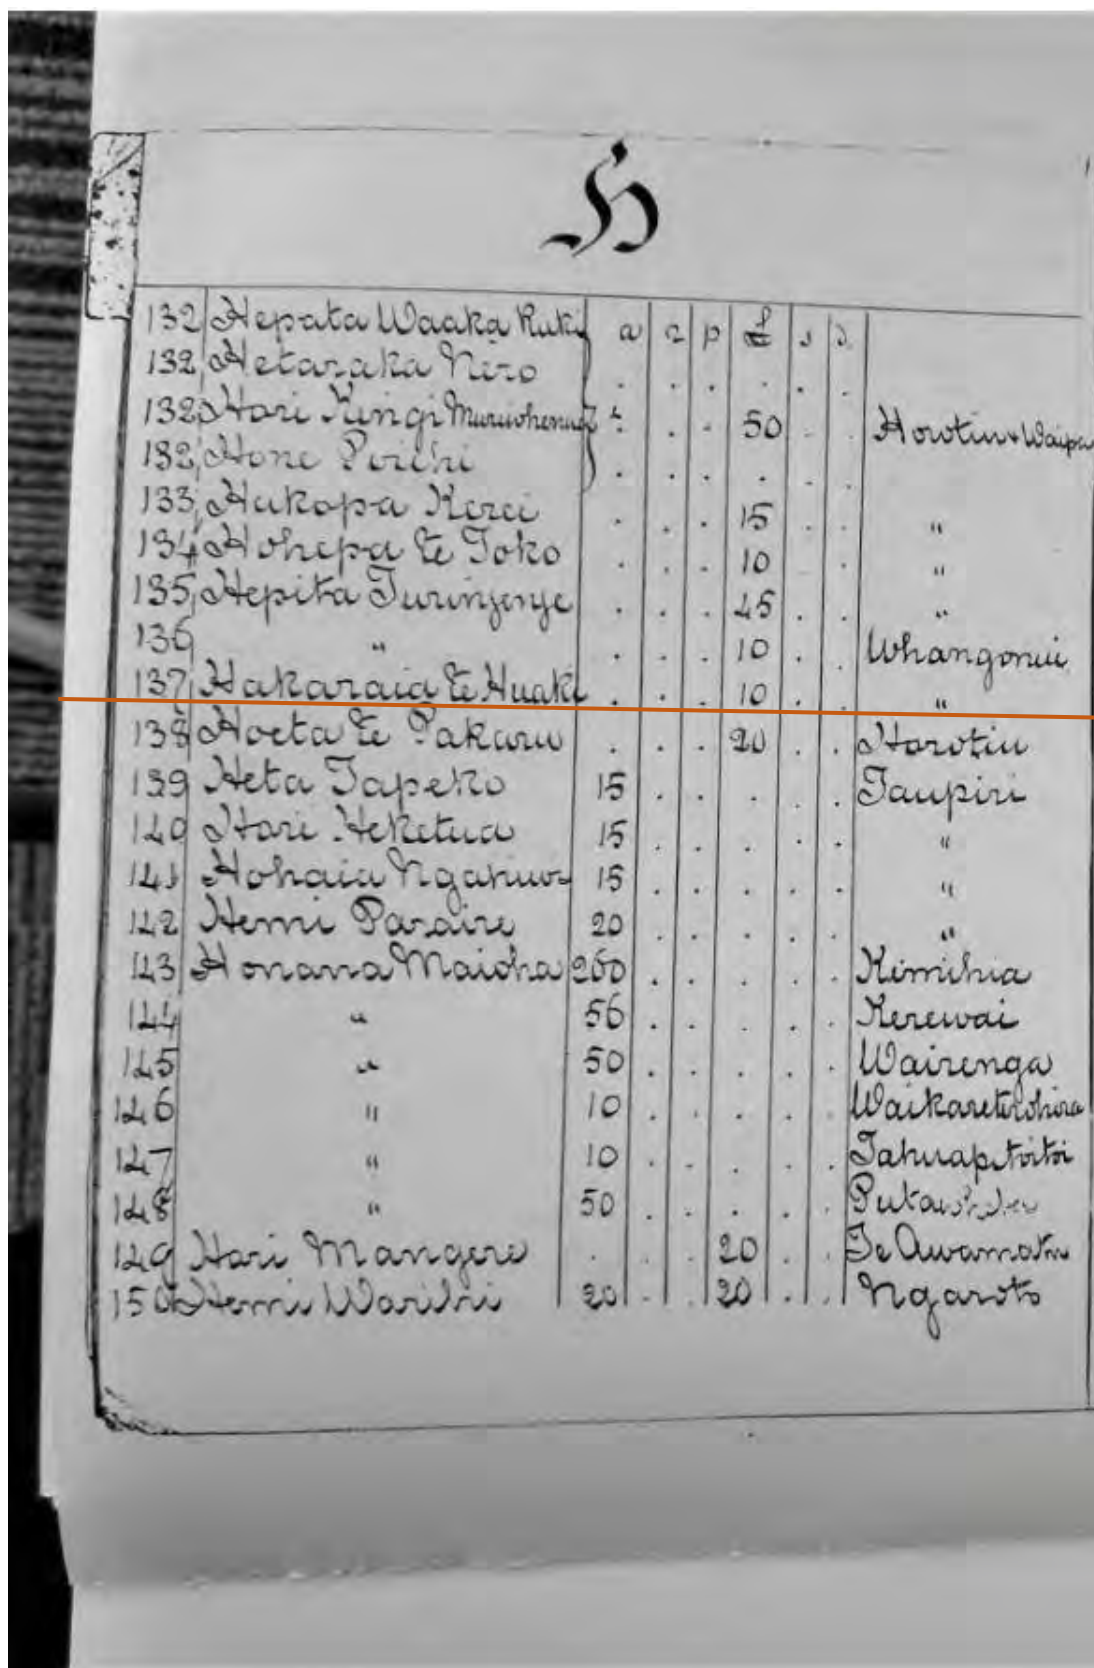 H
132 Hepata Waaka Kuki a r p £ s d
132 Hetaraka Nero . . . . . .
132 Hari Kingi . . 50 . . Horotiu & Waipa
132 Hone Poihi . . . . . .
133 Hakopa Kerei . . . 15 . . "
134 Hohepa te Toko . . . 10 . . "
135 Hepita Turingenge . . . 45 . . "
136 " . . . 10 . . Whangonui
137 Hakaraia te Huaki . . . 10 . . "
138 Hoeta te Pakaru . . . 20 . . Horotiu
139 Heta Tapeko 15 . . . . . Taupiri
140 Hari Heketua 15 . . . . . "
141 Hohaia 15 . . . . . "
142 Hemi Paraire 20 . . . . . "
143 Honana Maioha 200 . . . . . Kimihia
144 " 56 . . . . . Kerewai
145 " 50 . . . . . Wairenga
146 " 10 . . . . .
147 " 10 . . . . .
148 " 50 . . . . .
149 Hari Mangere . . . 20 . . Te Awamatu
150 Hemi Warihi 20 . . 20 . . Ngaroto